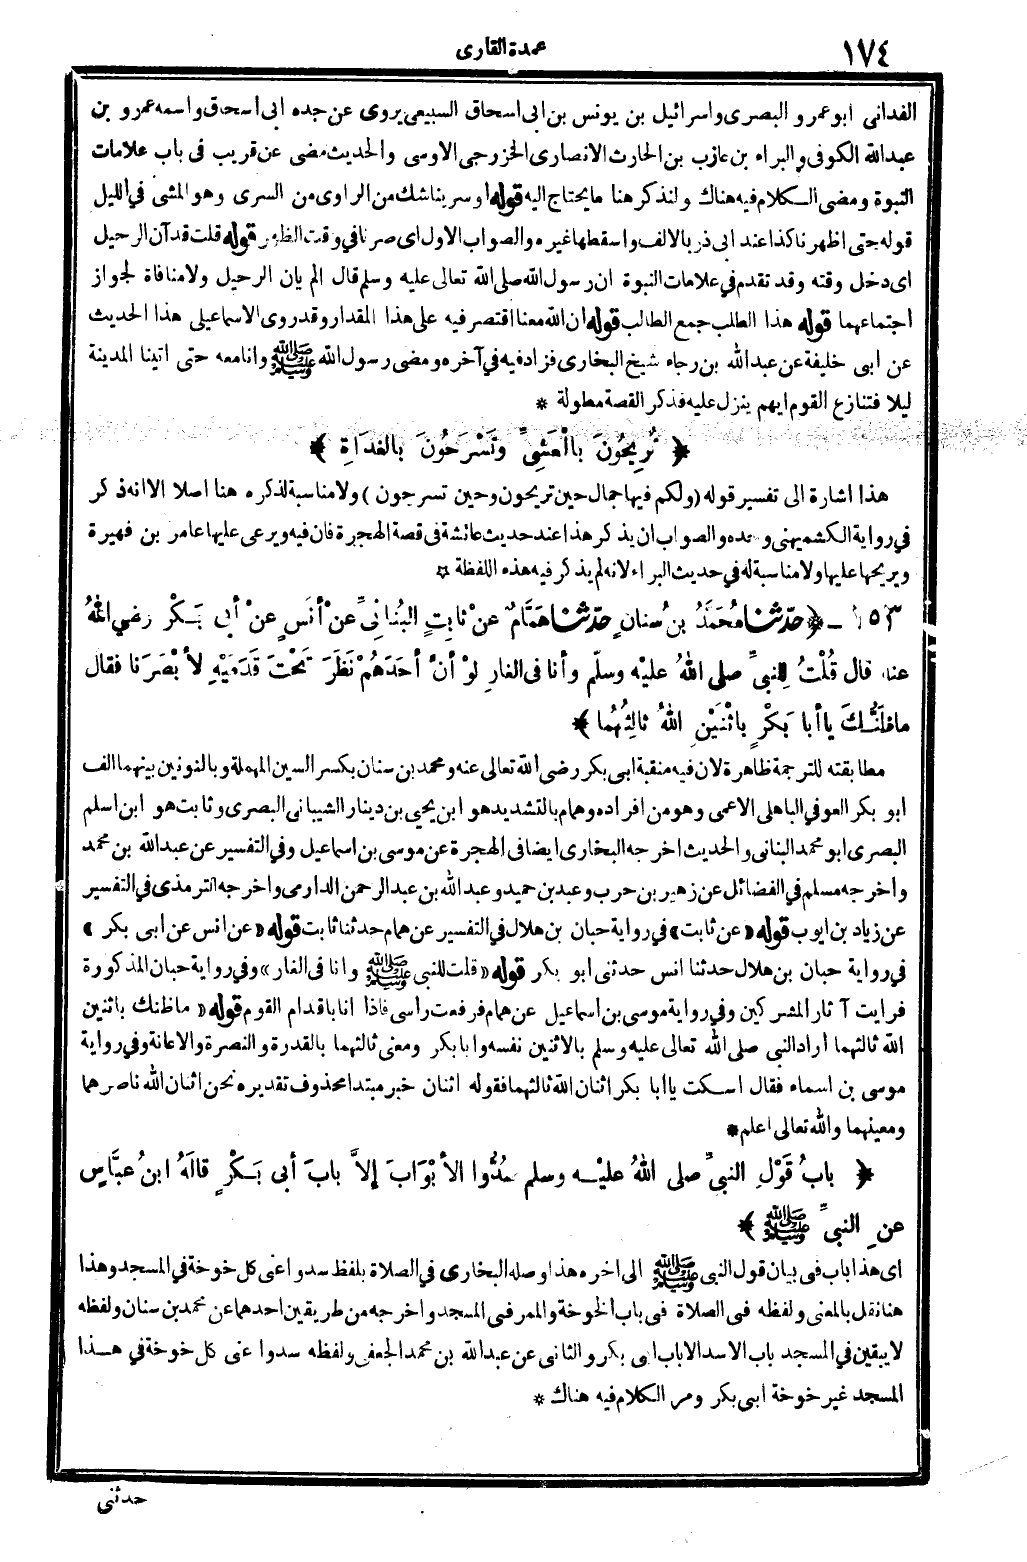 ١٧٤
عمدة القارى
الغدانى ابو عمرو البصرى واسرائيل بن يونس بن ابى اسحاق السبيعى يروى عن جده ابى اسحاق واسمه عمرو بن
عبدالله الكوفى والبراء بن عازب بن الحارث الانصارى الخزرجى الاوسى والحديث مضى عن قريب فى باب علامات
النبوة ومضى الكلام فيه هناك ولنذكر هنا ما يحتاج اليه قوله اوسرينا شك من الراوى من السرى وهو المشى فى الليل
قوله حتى اظهرنا كذا عند ابى ذر بالالف واسقطها غيره والصواب الاول اى صرنا فى وقت الظهر قوله قلت قد آن الرحيل
اى دخل وقته وقد تقدم فى علامات النبوة ان رسول الله صلى الله تعالى عليه وسلم قال الم يان الرحيل ولا منافاة لجواز
اجتماعهما قوله هذا الطلب جمع الطالب قوله ان الله معنا اقتصر فيه على هذا المقدار وقد روى الاسماعيلى هذا الحديث
عن ابى خليفة عن عبدالله بن رجاء شيخ البخارى فزاد فيه فى آخره ومضى رسول الله ﷺ وانا معه حتى اتينا المدينة
ليلا فتنازع القوم ايهم ينزل عليه فذكر القصة مطولة *
﴿ تُرِيحُونَ بِالْعَشِىِّ وَتَسْرَحُونَ بِالغَدَاةِ ﴾
هذا اشارة الى تفسير قوله (ولكم فيها جمال حين تريحون وحين تسرحون) ولا مناسبة لذكره هنا اصلا الا انه ذكر
فى رواية الكشميهنى وحده والصواب ان يذكر هذا عند حديث عائشة فى قصة الهجرة فان فيه ويرعى عليها عامر بن فهيرة
ويريحها عليها ولا مناسبة له فى حديث البراء لانه لم يذكر فيه هذه اللفظة *
١٥٣ ـ ﴿ حدّثنا مُحَمَّدُ بن سنانٍ حدّثنا هَمَّامٌ عنْ ثابِتٍ البُنانِىِّ عنْ أنَسٍ عنْ أبِى بَكْرٍ رضى اللهُ
عنه قال قُلْتُ لِلنبىِّ صلى اللهُ عليْه وسلّم وأنا فى الغارِ لوْ أنَّ أحَدَهُمْ نَظَرَ تَحْتَ قَدَمَيْهِ لأَبْصَرَنا فقال
ماظَنُّكَ ياأبا بَكْرٍ بِاثْنَيْنِ اللهُ ثالِثُهُما ﴾
مطابقته للترجمة ظاهرة لان فيه منقبة ابى بكر رضى الله تعالى عنه ومحمد بن سنان بكسر السين المهملة وبالنونين بينهما الف
ابو بكر العوفى الباهلى الاعمى وهو من افراده وهمام بالتشديد هو ابن يحيى بن دينار الشيبانى البصرى وثابت هو ابن اسلم
البصرى ابو محمد البنانى والحديث اخرجه البخارى ايضا فى الهجرة عن موسى بن اسماعيل وفى التفسير عن عبدالله بن محمد
واخرجه مسلم فى الفضائل عن زهير بن حرب وعبد بن حميد وعبدالله بن عبدالرحمن الدارمى واخرجه الترمذى فى التفسير
عن زياد بن ايوب قوله «عن ثابت» فى رواية حبان بن هلال فى التفسير عن همام حدثنا ثابت قوله «عن انس عن ابى بكر»
فى رواية حبان بن هلال حدثنا انس حدثنى ابو بكر قوله «قلت للنبى ﷺ وانا فى الغار» وفى رواية حبان المذكورة
فرايت آثار المشركين وفى رواية موسى بن اسماعيل عن همام فرفعت راسى فاذا انا باقدام القوم قوله «ماظنك باثنين
الله ثالثهما اراد النبى صلى الله تعالى عليه وسلم بالاثنين نفسه وابا بكر ومعنى ثالثهما بالقدرة والنصرة والاعانة وفى رواية
موسى بن اسماء فقال اسكت ياأبا بكر اثنان الله ثالثهما فقوله اثنان خبر مبتدا محذوف تقديره نحن اثنان الله ناصرهما
ومعينهما والله تعالى اعلم *
﴿ بابُ قَوْلِ النبىِّ صلى اللهُ عليْه وسلم سُدُّوا الأبْوَابَ إلاَّ بابَ أبى بَكْرٍ قالَهُ ابنُ عبَّاسٍ
عنِ النبىِّ ﷺ ﴾
اى هذا باب فى بيان قول النبى ﷺ الى اخره هذا وصله البخارى فى الصلاة بلفظ سدوا عنى كل خوخة فى المسجد وهذا
هنا نقل بالمعنى ولفظه فى الصلاة فى باب الخوخة والممر فى المسجد واخرجه من طريقين احدهما عن محمد بن سنان ولفظه
لا يبقين فى المسجد باب الا سد الا باب ابى بكر والثانى عن عبدالله بن محمد الجعفى ولفظه سدوا عنى كل خوخة فى هذا
المسجد غير خوخة ابى بكر ومر الكلام فيه هناك *
حدثنى